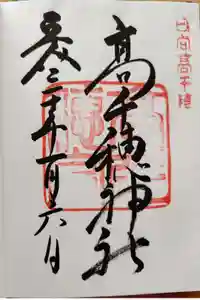 日向高千穂
高千穂神社
三十年一月六日